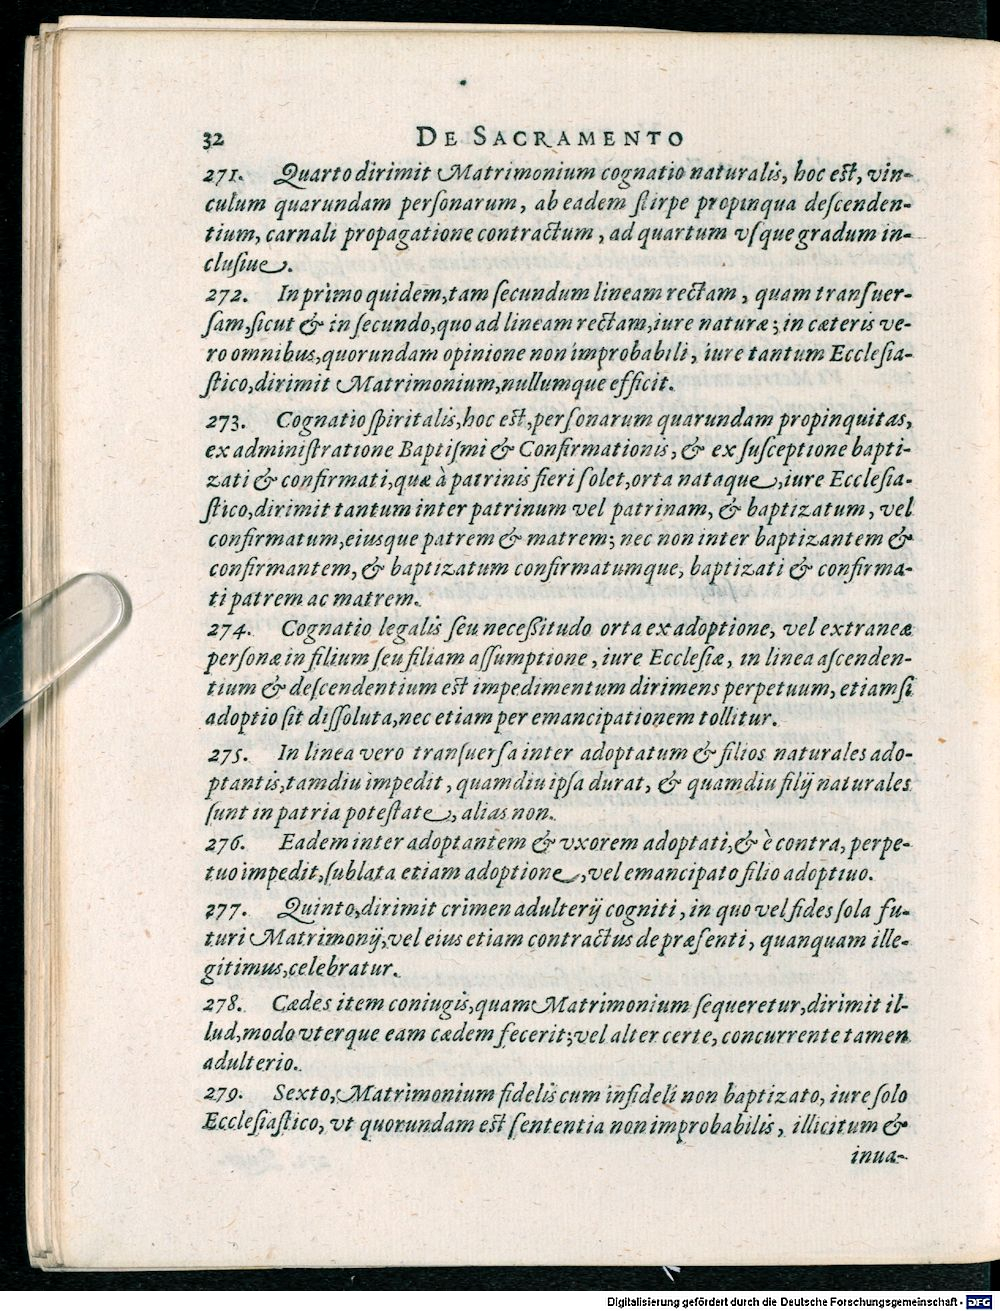 32 DE SACRAMENTO
271. Quarto dirimit Matrimonium cognatio naturalis, hoc est, vin-
culum quarundam personarum, ab eadem stirpe propinqua descenden-
tium, carnali propagatione contractum, ad quartum vsque gradum in-
clusiue.
272. In primo quidem, tam secundum lineam rectam, quam transuer-
sam, sicut & in secundo, quo ad lineam rectam, iure naturæ; in cæteris ve-
ro omnibus, quorundam opinione non improbabili, iure tantum Ecclesia-
stico, dirimit Matrimonium, nullumque efficit.
273. Cognatio spiritalis, hoc est, personarum quarundam propinquitas,
ex administratione Baptismi & Confirmationis, & ex susceptione bapti-
zati & confirmati, quæ à patrinis fieri solet, orta nataque, iure Ecclesia-
stico, dirimit tantum inter patrinum vel patrinam, & baptizatum, vel
confirmatum, eiusque patrem & matrem; nec non inter baptizantem &
confirmantem, & baptizatum confirmatumque, baptizati & confirma-
ti patrem ac matrem.
274. Cognatio legalis seu necessitudo orta ex adoptione, vel extraneæ
personæ in filium seu filiam assumptione, iure Ecclesiæ, in linea ascenden-
tium & descendentium est impedimentum dirimens perpetuum, etiamsi
adoptio sit dissoluta, nec etiam per emancipationem tollitur.
275. In linea vero transuersa inter adoptatum & filios naturales ado-
ptantis, tamdiu impedit, quamdiu ipsa durat, & quamdiu filij naturales
sunt in patria potestate, alias non.
276. Eadem inter adoptantem & vxorem adoptati, & è contra, perpe-
tuo impedit, sublata etiam adoptione, vel emancipato filio adoptiuo.
277. Quinto, dirimit crimen adulterij cogniti, in quo vel fides sola fu-
turi Matrimonij, vel eius etiam contractus de præsenti, quanquam ille-
gitimus, celebratur.
278. Cædes item coniugis, quam Matrimonium sequeretur, dirimit il-
lud, modo vterque eam cædem fecerit; vel alter certe, concurrente tamen
adulterio.
279. Sexto, Matrimonium fidelis cum infideli non baptizato, iure solo
Ecclesiastico, vt quorundam est sententia non improbabilis, illicitum &
inua-
Digitalisierung gefördert durch die Deutsche Forschungsgemeinschaft - DFG